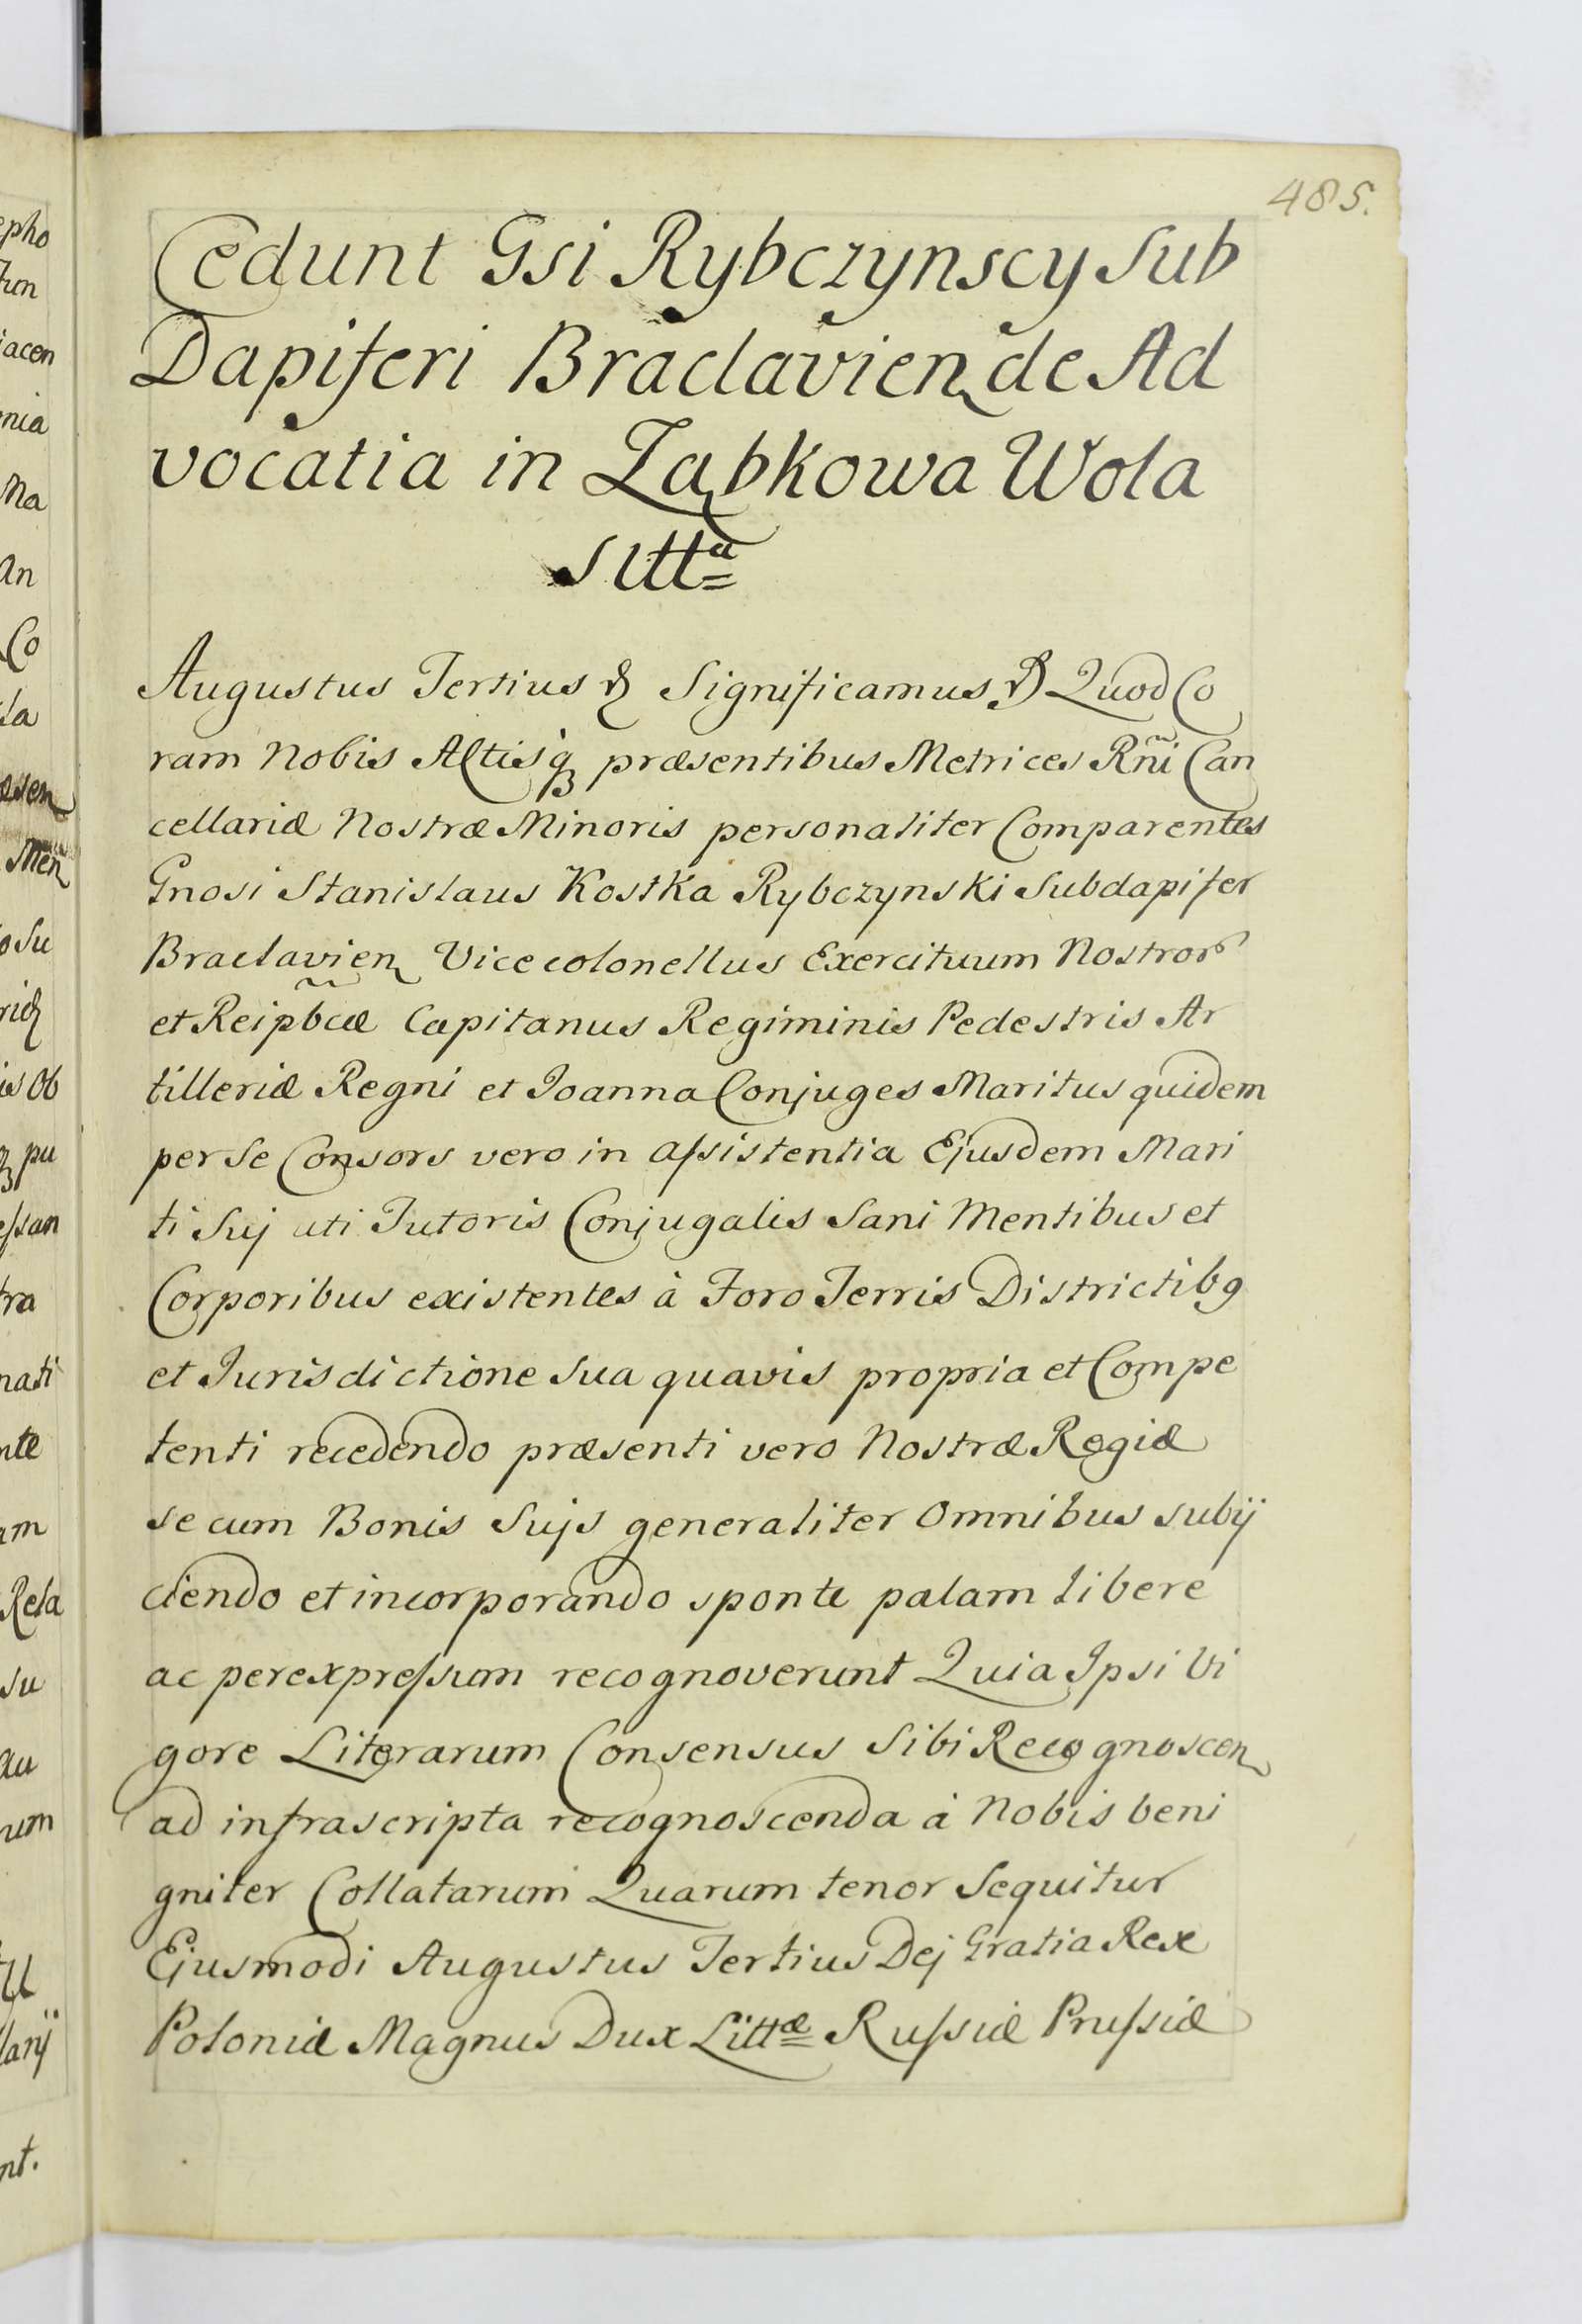 485.
Cedunt Gsi Rybczynscy Sub
Dapiferi Braclavien de Ad
vocatia in Ząbkowa Wola
sitta
Augustus Tertius & Significamus & Quod Co
ram Nobis Actisq præsentibus Metrices Rñi Can
cellariæ Nostræ Minoris personaliter Comparentes
Gnosi Stanislaus Kostka Rybczynski Subdapifer
Braclavien Vicecolonellus Exercituum Nostror
et Reipbcæ Capitanus Regiminis Pedestris Ar
tilleriæ Regni et Joanna Conjuges Maritus quidem
per Se Consors vero in assistentia Ejusdem Mari
ti Suj uti Tutoris Conjugalis Sani Mentibus et
Corporibus existentes à Foro Terris Districtib9
et Jurisdictione Sua quavis propria et Compe
tenti recedendo præsenti vero Nostræ Regiæ
se cum Bonis Sujs generaliter Omnibus subij
ciendo et incorporando sponte palam libere
ac perexpressum recognoverunt Quia Ipsi Vi
gore Literarum Consensus Sibi Recognoscen
ad infrascripta recognoscenda à Nobis beni
gniter Collatarum Quarum tenor Sequitur
Ejusmodi Augustus Tertius Dej Gratia Rex
Poloniæ Magnus Dux Littæ Russiæ Prussiæ